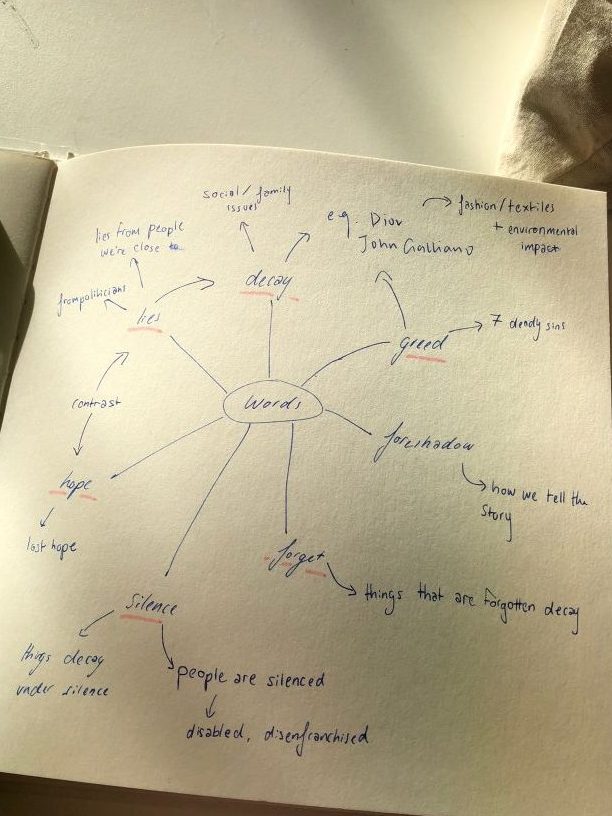 social/family
issues
e.g. Dior
John Galliano
fashion/textiles
+ environmental
impact
lies from people
we're close to
from politicians
lies
decay
greed
7 deadly sins
contrast
Words
foreshadow
how we tell the
story
hope
last hope
forget
things that are forgotten decay
Silence
things decay
under silence
people are silenced
disabled, disenfranchised